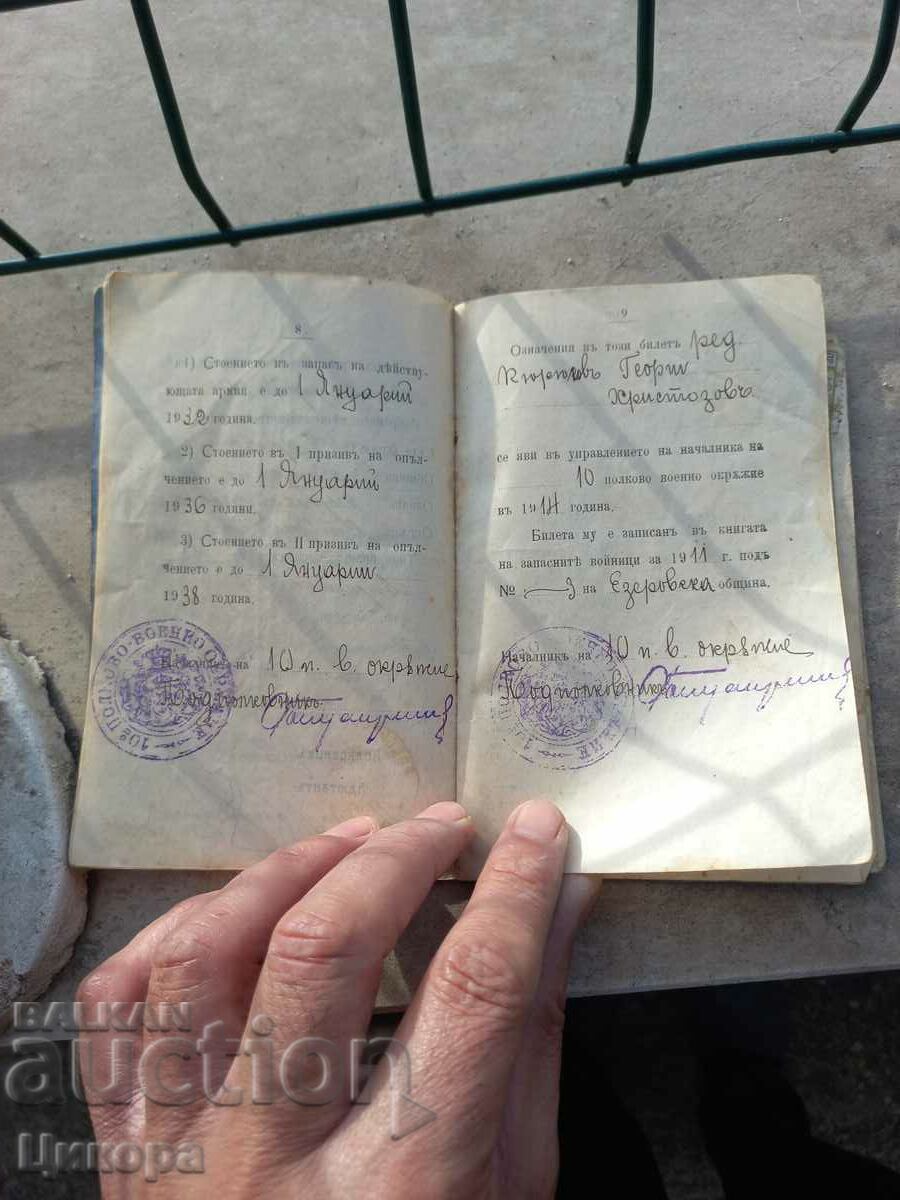 8
1) Стоението въ запасъ на дѣйству-
ющата армия е до 1 Януарий
1932 година.
2) Стоението въ I призивъ на опъл-
чението е до 1 Януарий
1936 години.
3) Стоението въ II призивъ на опъл-
чението е до 1 Януарий
1938 година.
Началникъ на 10 п. в. окрѫжие
Подполковникъ
9
Означения въ този билетъ ред.
Георги
Христозовъ
се яви въ управлението на началника на
10 полково военно окрѫжие
въ 1914 година.
Билета му е записанъ въ книгата
на запаснитѣ войници за 1911 г. подъ
№ на Езеровска община.
Началникъ на 10 п. в. окрѫжие
Подполковникъ
BALKAN
auction
Цикора